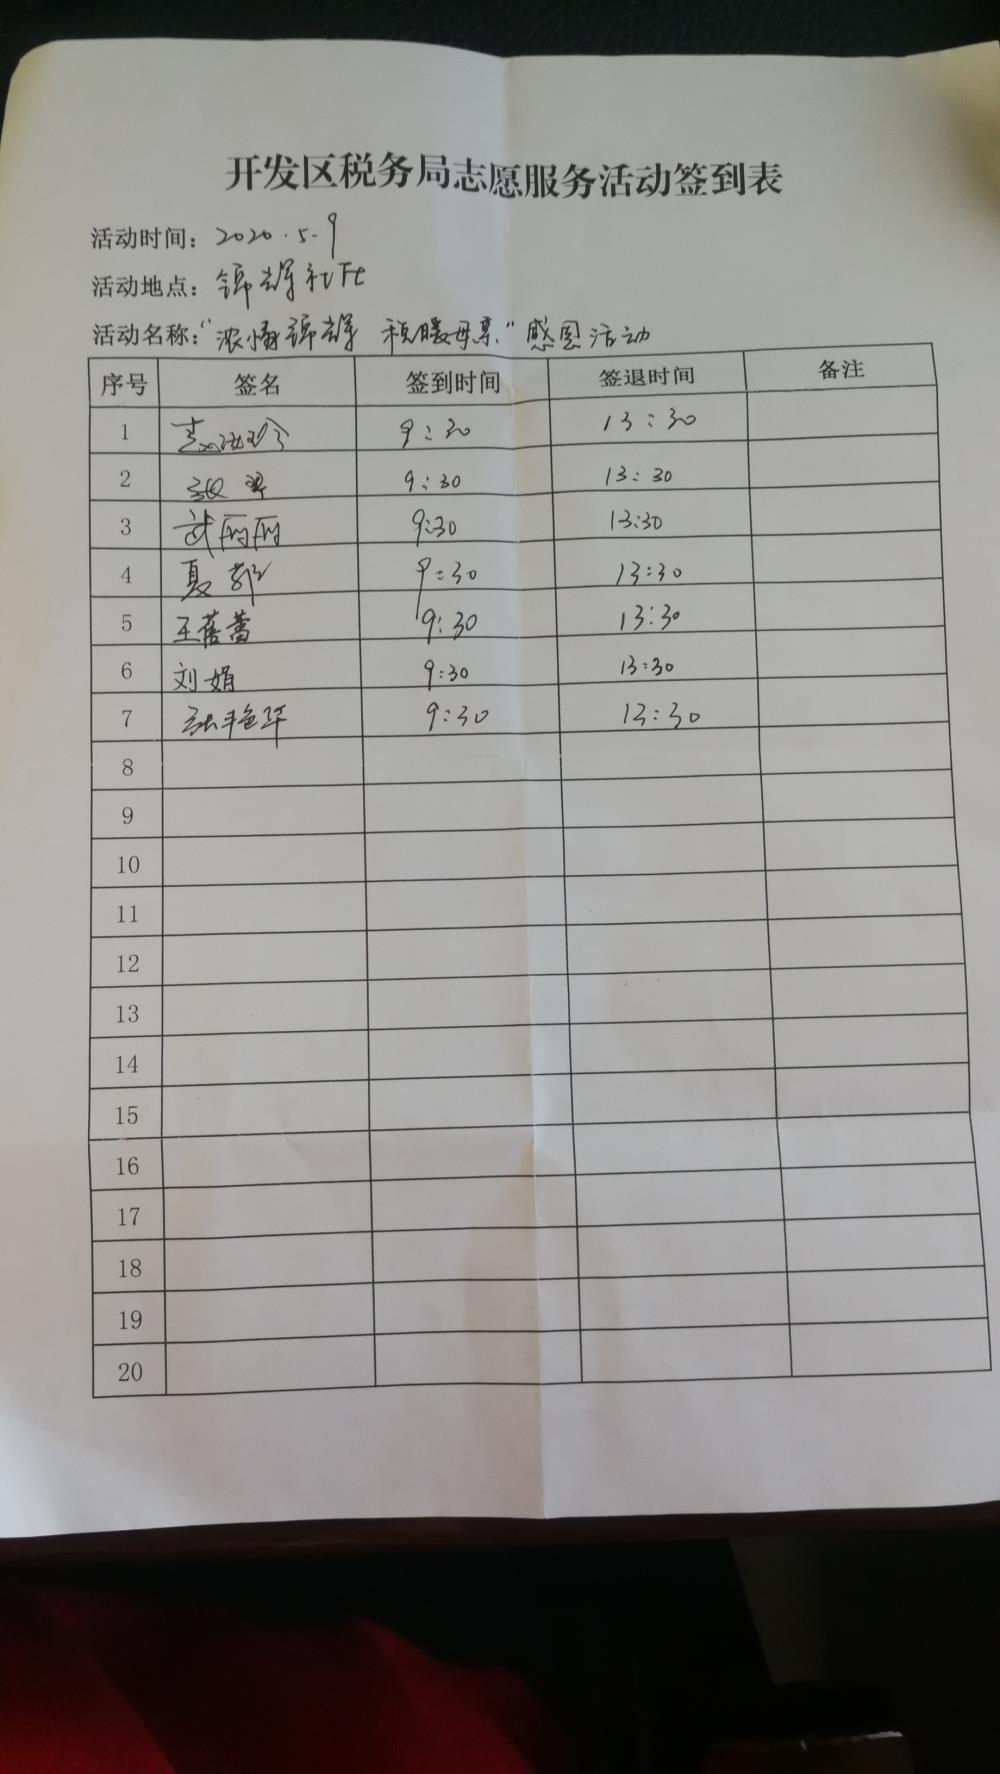 开发区税务局志愿服务活动签到表
活动时间：2020.5.9
活动地点：锦辉社区
活动名称："浓情锦辉 税暖母亲"感恩活动
序号 签名 签到时间 签退时间 备注
1 9:30 13:30
2 9:30 13:30
3 武丽丽 9:30 13:30
4 夏 9:30 13:30
5 王蓓蕾 9:30 13:30
6 刘娟 9:30 13:30
7 张艳华 9:30 13:30
8
9
10
11
12
13
14
15
16
17
18
19
20